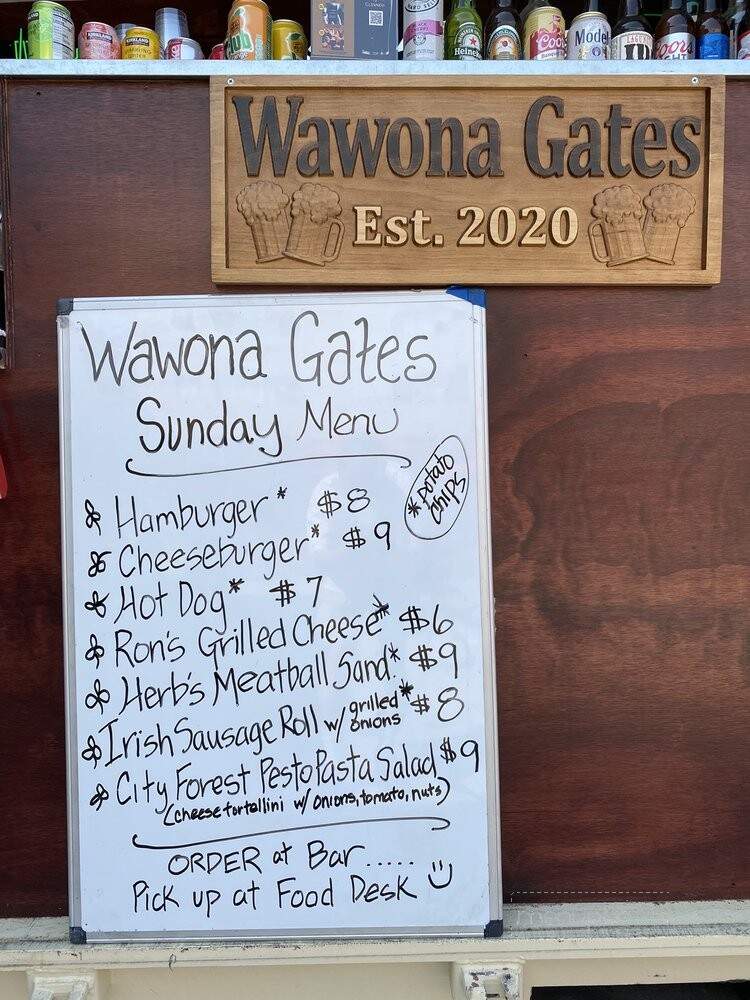 KIRKLAND
KIRKLAND
Heineken
Coors
Model
LAGU
Coors
LIGHT
Wawona Gates
Est. 2020
Wawona Gates
Sunday Menu
* potato
chips
Hamburger* $8
Cheeseburger* $9
Hot Dog* $7
Ron's Grilled Cheese* $6
Herb's Meatball Sand.* $9
Irish Sausage Roll w/ grilled onions* $8
City Forest Pesto Pasta Salad $9
(cheese tortellini w/ onions, tomato, nuts)
ORDER at Bar.....
Pick up at Food Desk